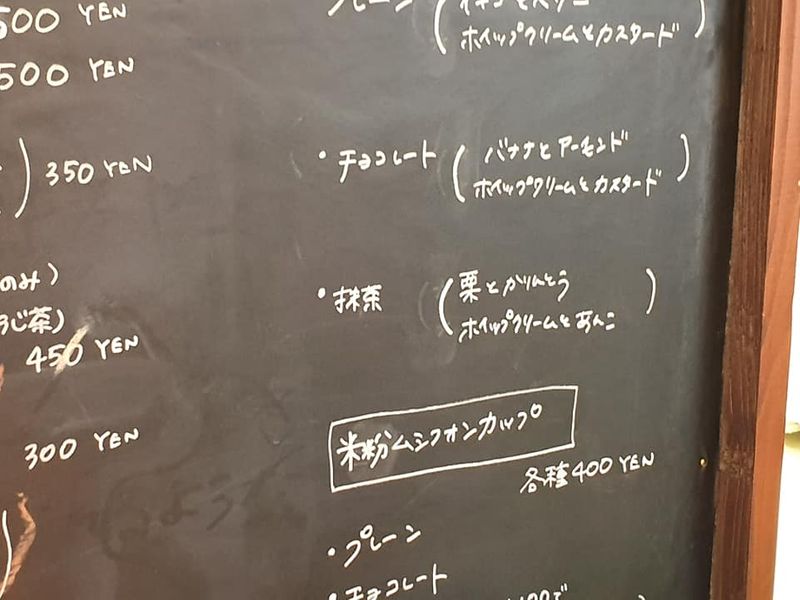 500 YEN
500 YEN
) 350 YEN
のみ)
うじ茶)
450 YEN
300 YEN
プレーン
ホイップクリームとカスタード)
・チョコレート (バナナとアーモンド
ホイップクリームとカスタード)
・抹茶 (栗とかりんとう
ホイップクリームとあんこ)
米粉ムシフォンカップ
各種400 YEN
・プレーン
・チョコレート